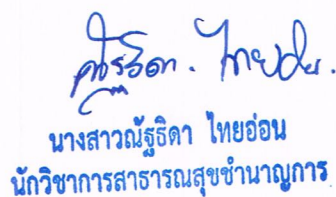 นางสาวณัฐธิดา ไทยอ่อน
นักวิชาการสาธารณสุขชำนาญการ